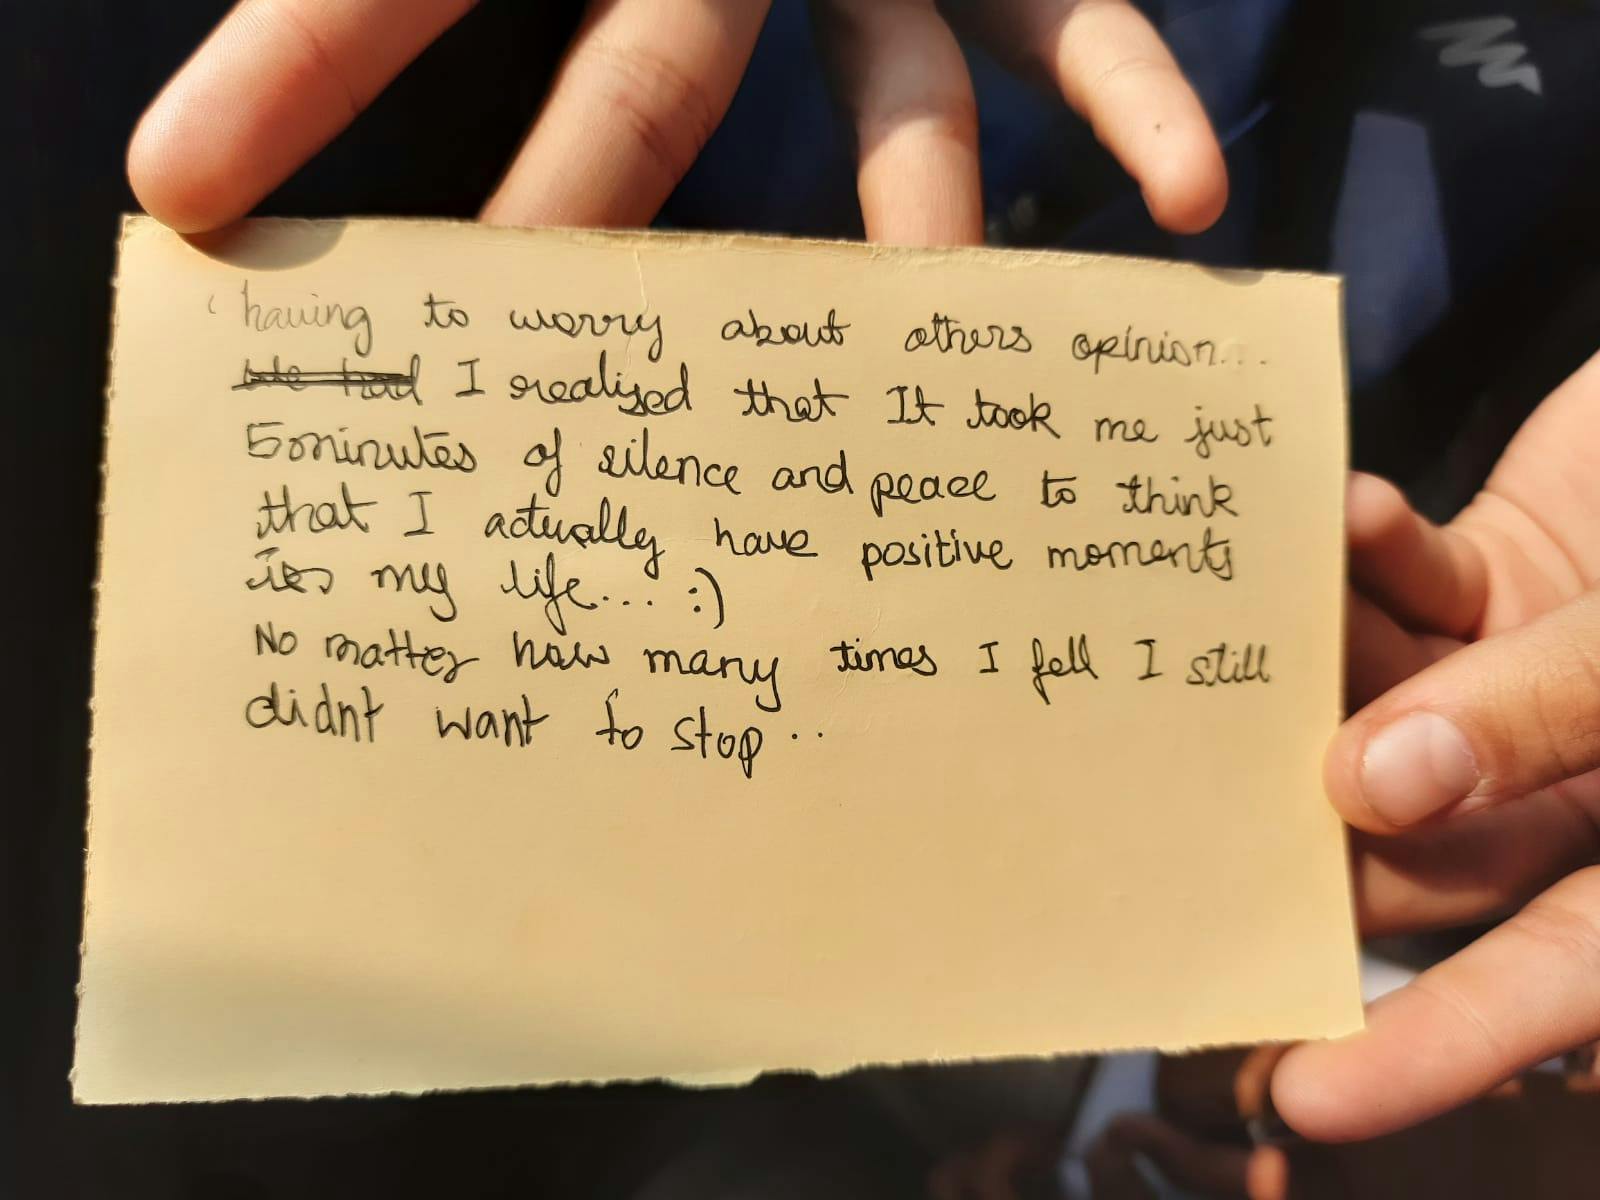 having to worry about others opinion...
I realised that It took me just
5 minutes of silence and peace to think
that I actually have positive moments
my life... :)
No matter how many times I fell I still
didnt want to stop..